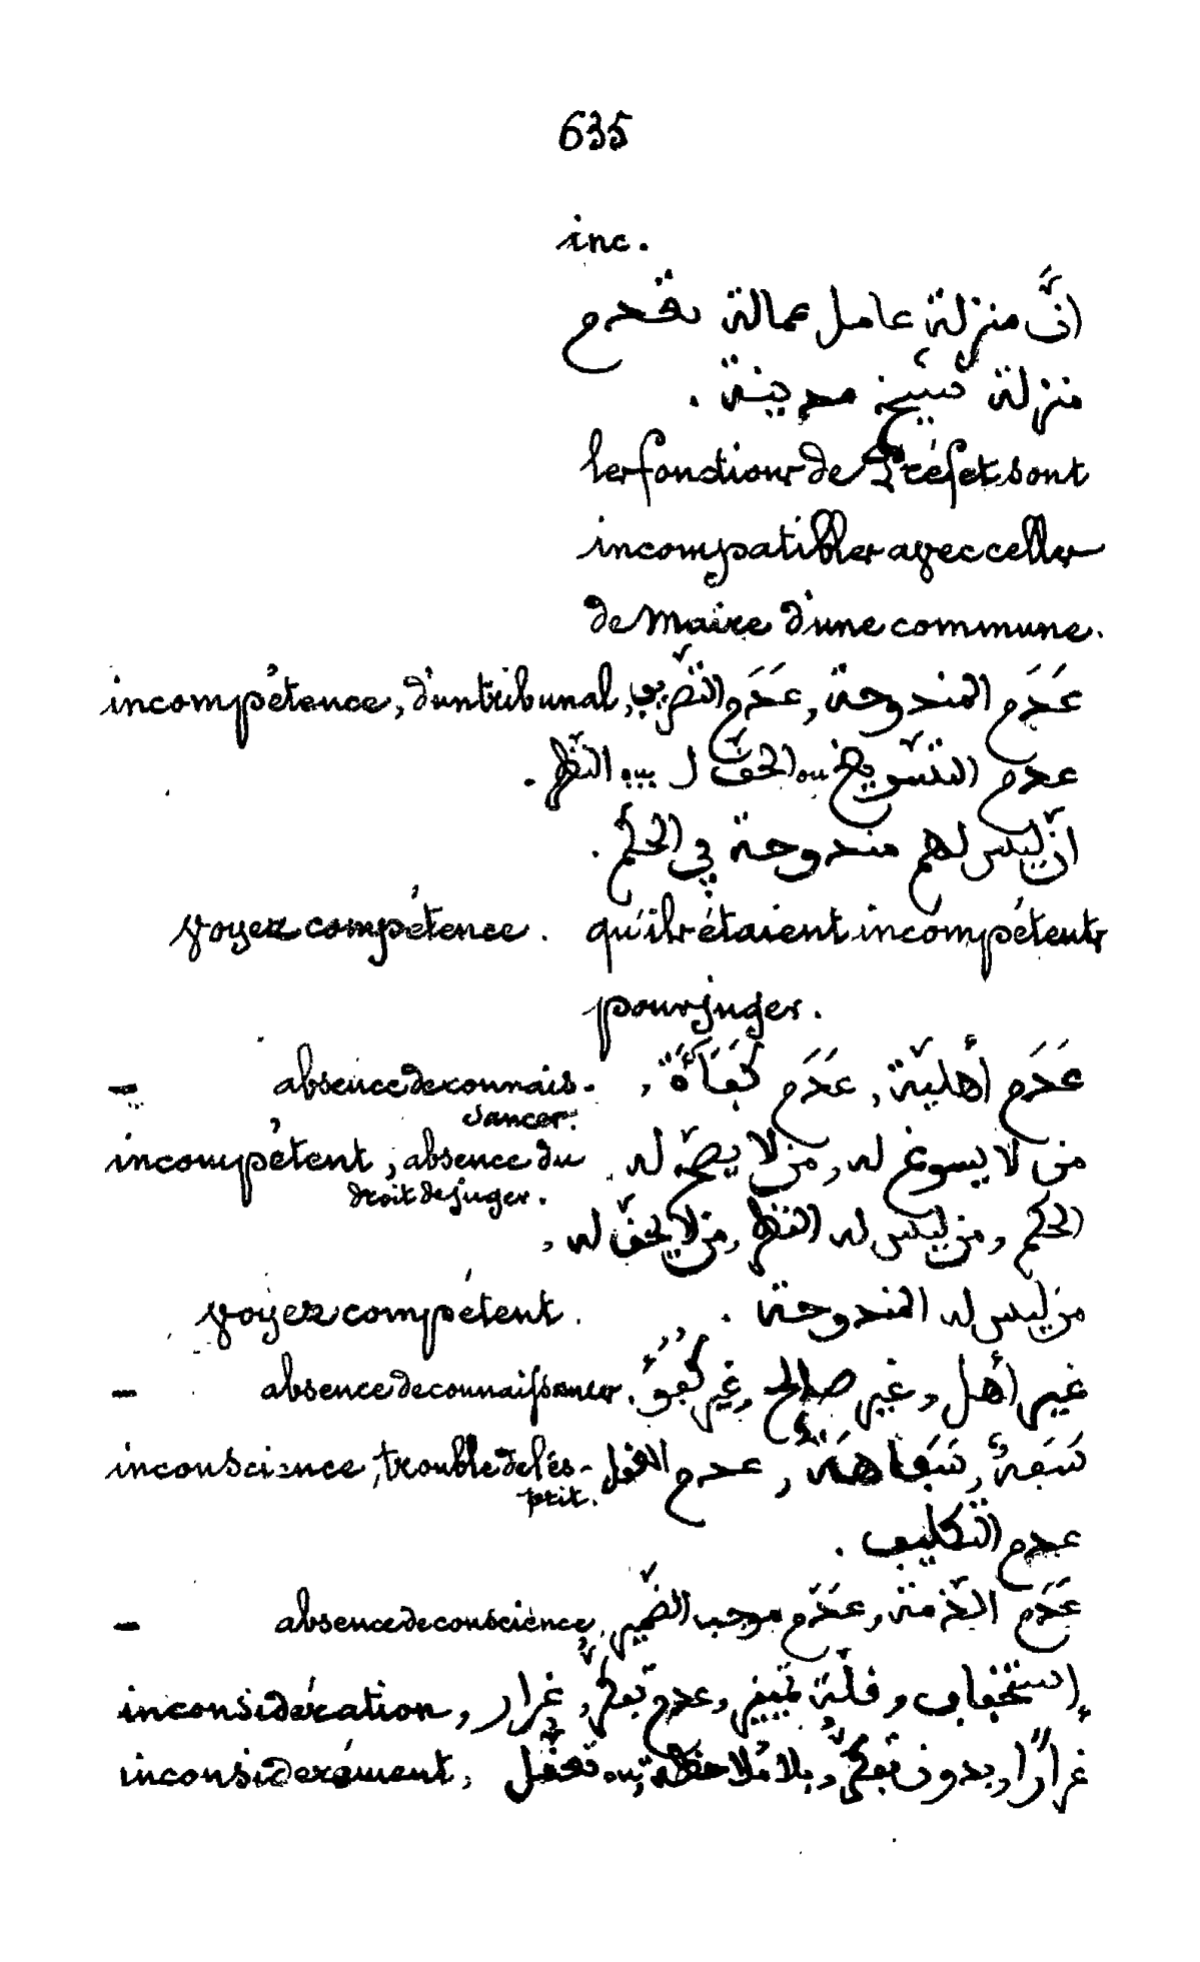 635
inc.
انّ منزلة عامل عمالة تقدم
منزلة شيخ مدينة .
les fonctions de Préfet sont
incompatibles avec celles
de Maire d'une commune.
incompétence, d'un tribunal, عَدَم المندوحة, عَدَم التصريف,
عدم التسويغ ou الحقّ ل ... النّظر .
انّ ليس لهم مندوحة في الحكم .
voyez compétence. qu'ils étaient incompétents
pour juger.
— absence de connais- عَدَم أهليّة, عَدَم كَفَاءَة,
sances:
incompétent, absence du من لا يسوغ له, من لا يصحّ له
droit de juger.
الحكم, من ليس له النظر, من لا يحقّ له,
voyez compétent. من ليس له المندوحة .
— absence de connaissances. غير أهل, غير صالح, غير كُفُؤ
inconscience, trouble de l'es- سَفَهٌ, سَفَاهَةٌ, عدم العقل
prit.
عدم التكليف .
— absence de conscience, عَدَم الذّمة, عَدَم موجب الضّمير
inconsidération, إستخفاف, قلّة تمييز, عدم تفكّر, غرار
inconsidérément, غرارًا, بدون تفكّر, بلا مُلاحظة ou تعقّل